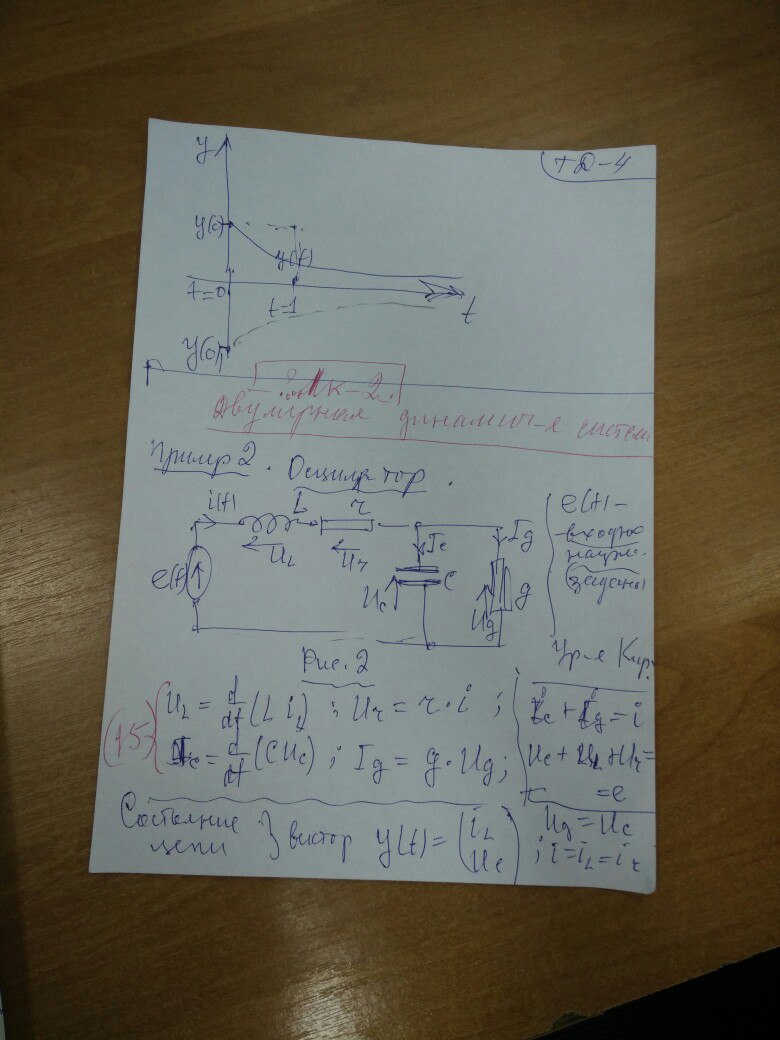 тD-4
y
y(0)
y(t)
t=0
t=1
t
y(0)
К-2
Двумерная динамич-я систем
Пример 2. Осцилятор.
i(t)
L
r
e(t)
U_L
U_r
I_c
I_g
U_c
C
U_g
g
e(t) -
входное
задано
Рис. 2
Ур-я Кир.
(1.5)
U_L = d/dt (L i_L) ; U_r = r · i ;
I_c = d/dt (C U_c) ; I_g = g · U_g ;
i_c + i_g = i
U_c + U_L + U_r =
= e
U_g = U_c
; i = i_L = i_r
Состояние
цепи } вектор y(t) = (i_L
U_c)